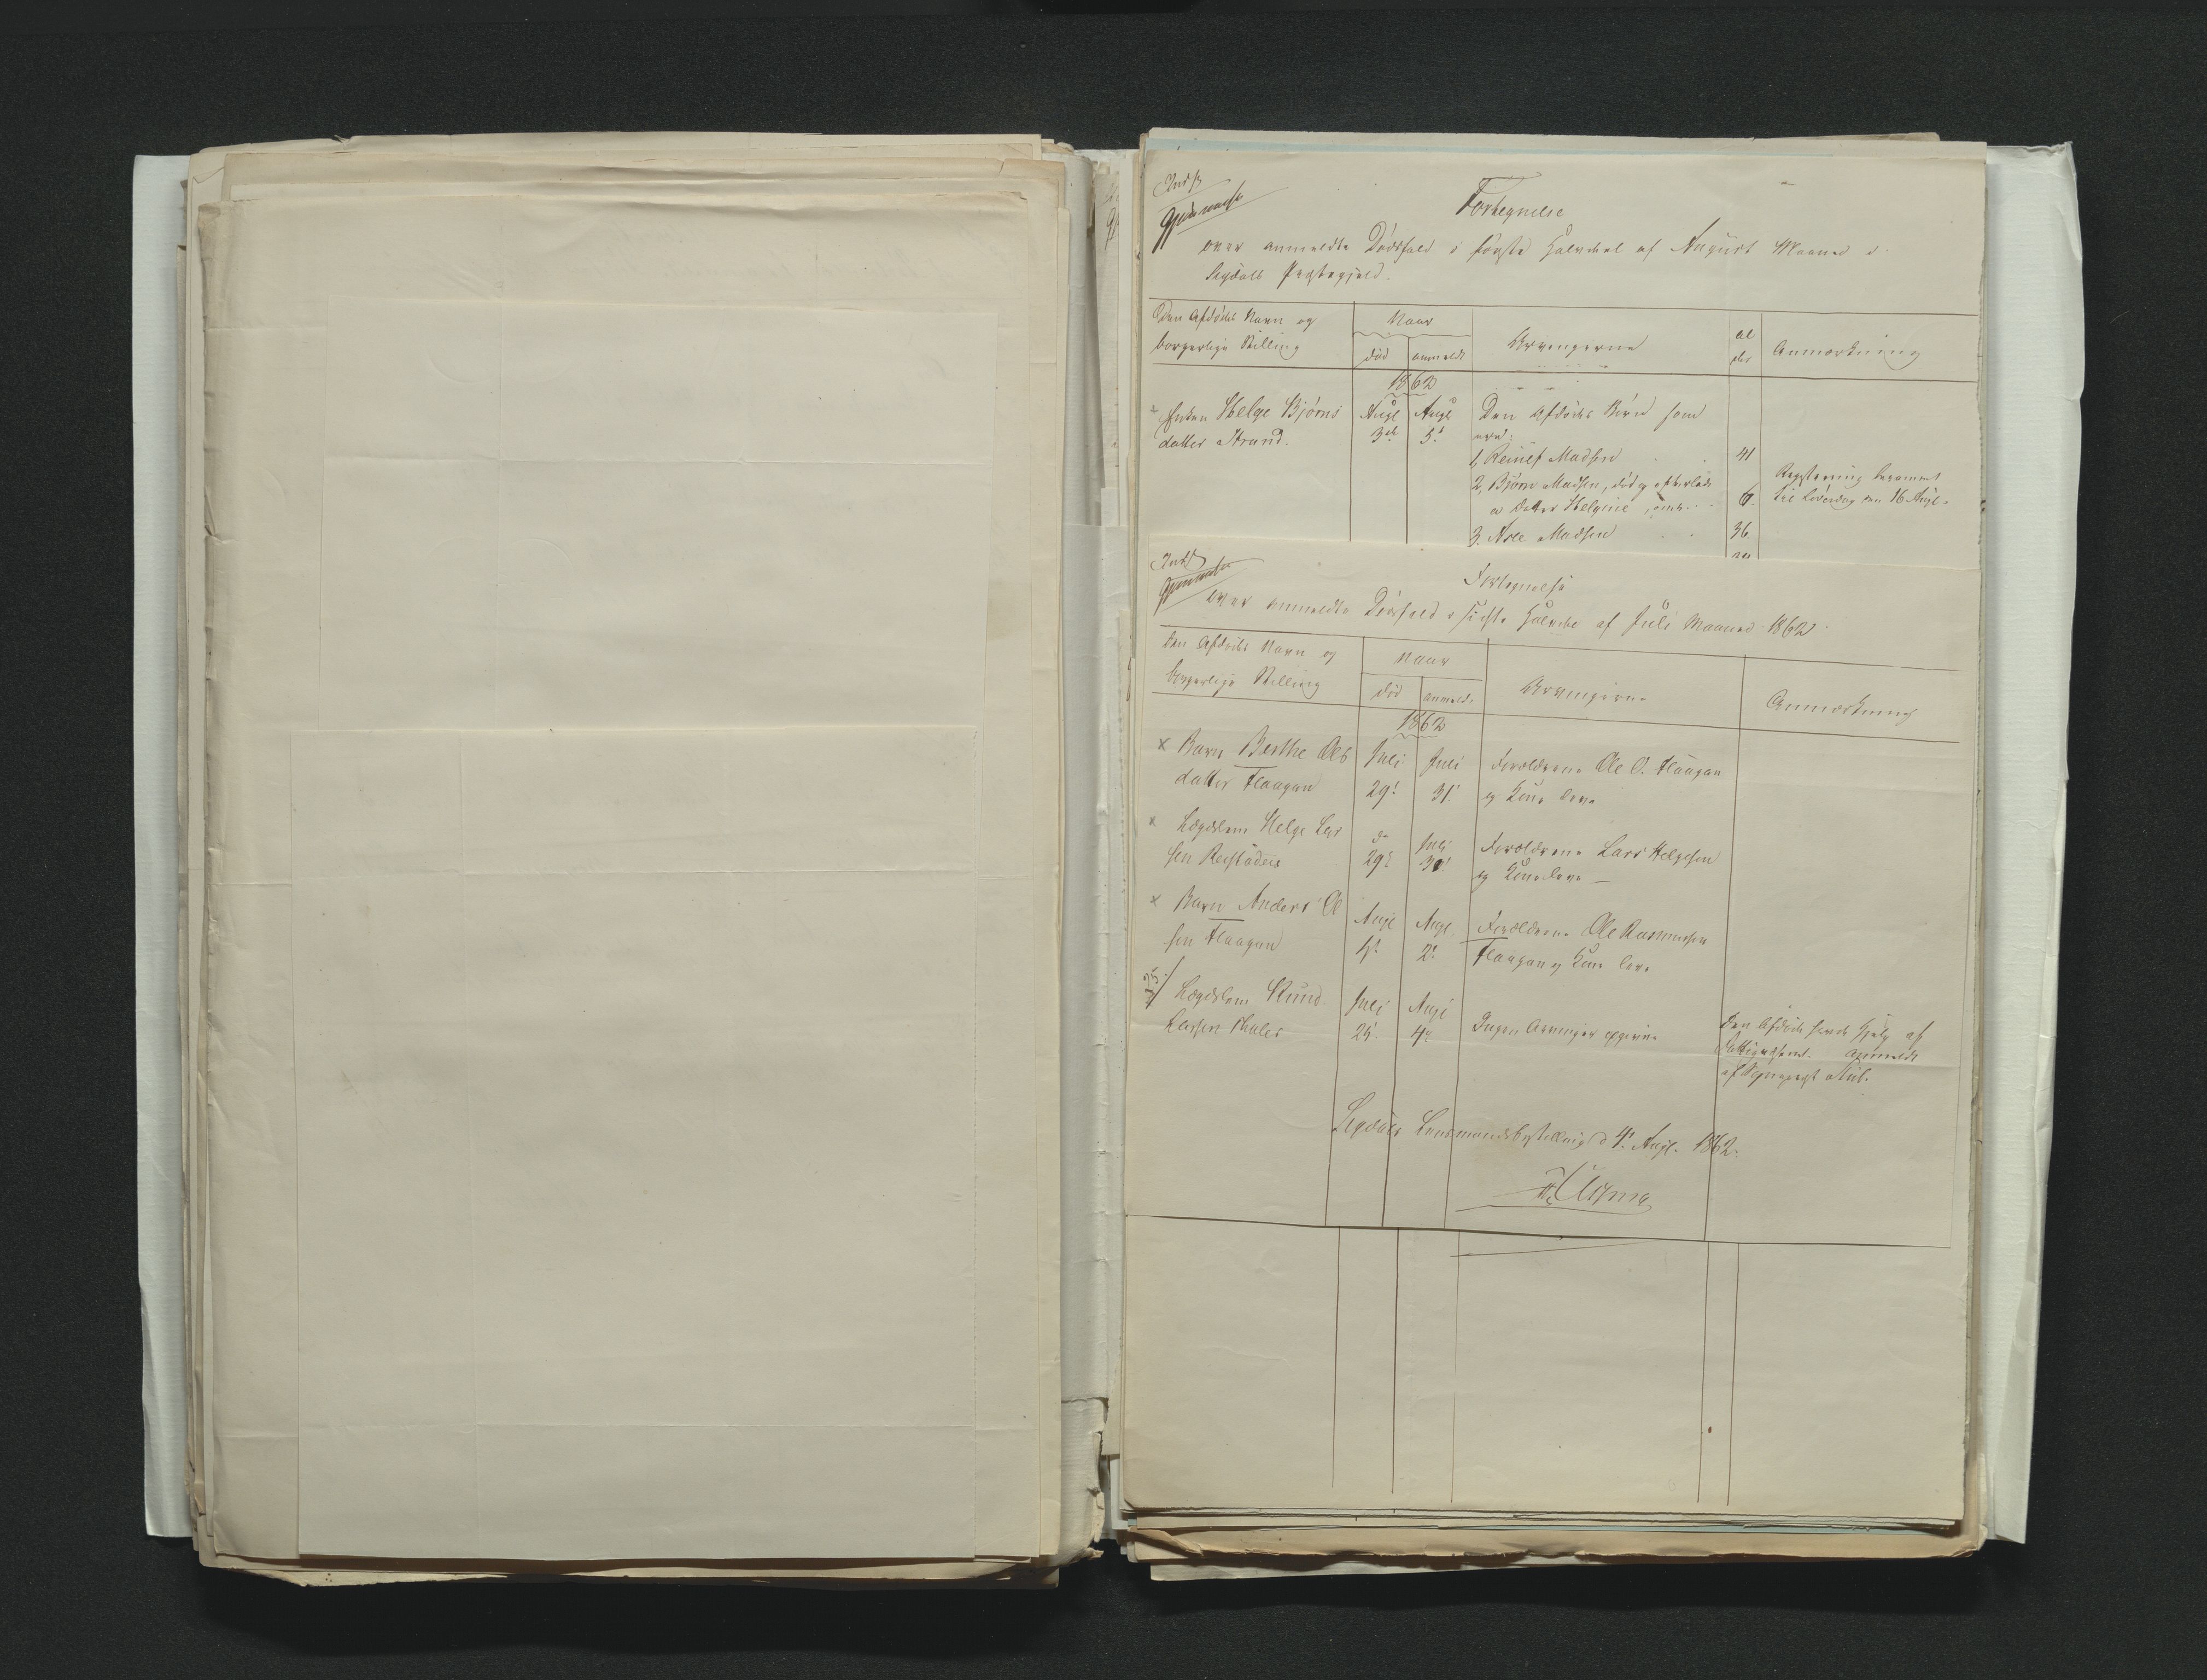 Fortegnelse
over anmeldte Dødsfald i første Halvdeel af August Maaned i
Sigdals Præstegjeld.
Den Afdødes Navn og
borgerlige Stilling
Naar
død
anmeldt
Arvingerne
al
der
Anmærkning
1862
Enken Helge Bjørns
datter Strand.
Augt
3die
Augt
5t
Den Afdødes Børn som
ere:
1, Reinef Madsen
41
2, Bjørn Madsen, død og efterladt
a Datter Helgine
6.
3. Nole Madsen
36.
Registrering berammet
til Løverdag den 16 Augt.
Fortegnelse
over anmeldte Dødsfald i sidste Halvdel af Juli Maaned 1862
Den Afdødes Navn og
borgerlige Stilling
Naar
død
anmeldt
Arvingerne
Anmærkning
1862
x Barn Berthe Ols
datter Flaagan
Juli
29t
Juli
31t
Forældrene Ole O. Flaagan
og Kone
x Lægdslem Helge Lar
sen
do
29t
Juli
Forældrene Lars Helgesen
og Kone
x Barn Anders Ol
sen Flaagan
Augt
1t
Augt
2t
Forældrene Ole Rasmussen
Flaagan og Kone
Lægdslem Knud
Larsen
Juli
25t
Augt
4t
Ingen Arvinger opgivne
Den Afdøde havde Hjelp af
Fattigvæsenet. Anmeldt
af
Sigdals Lensmandsbestilling d 4t Augt. 1862.